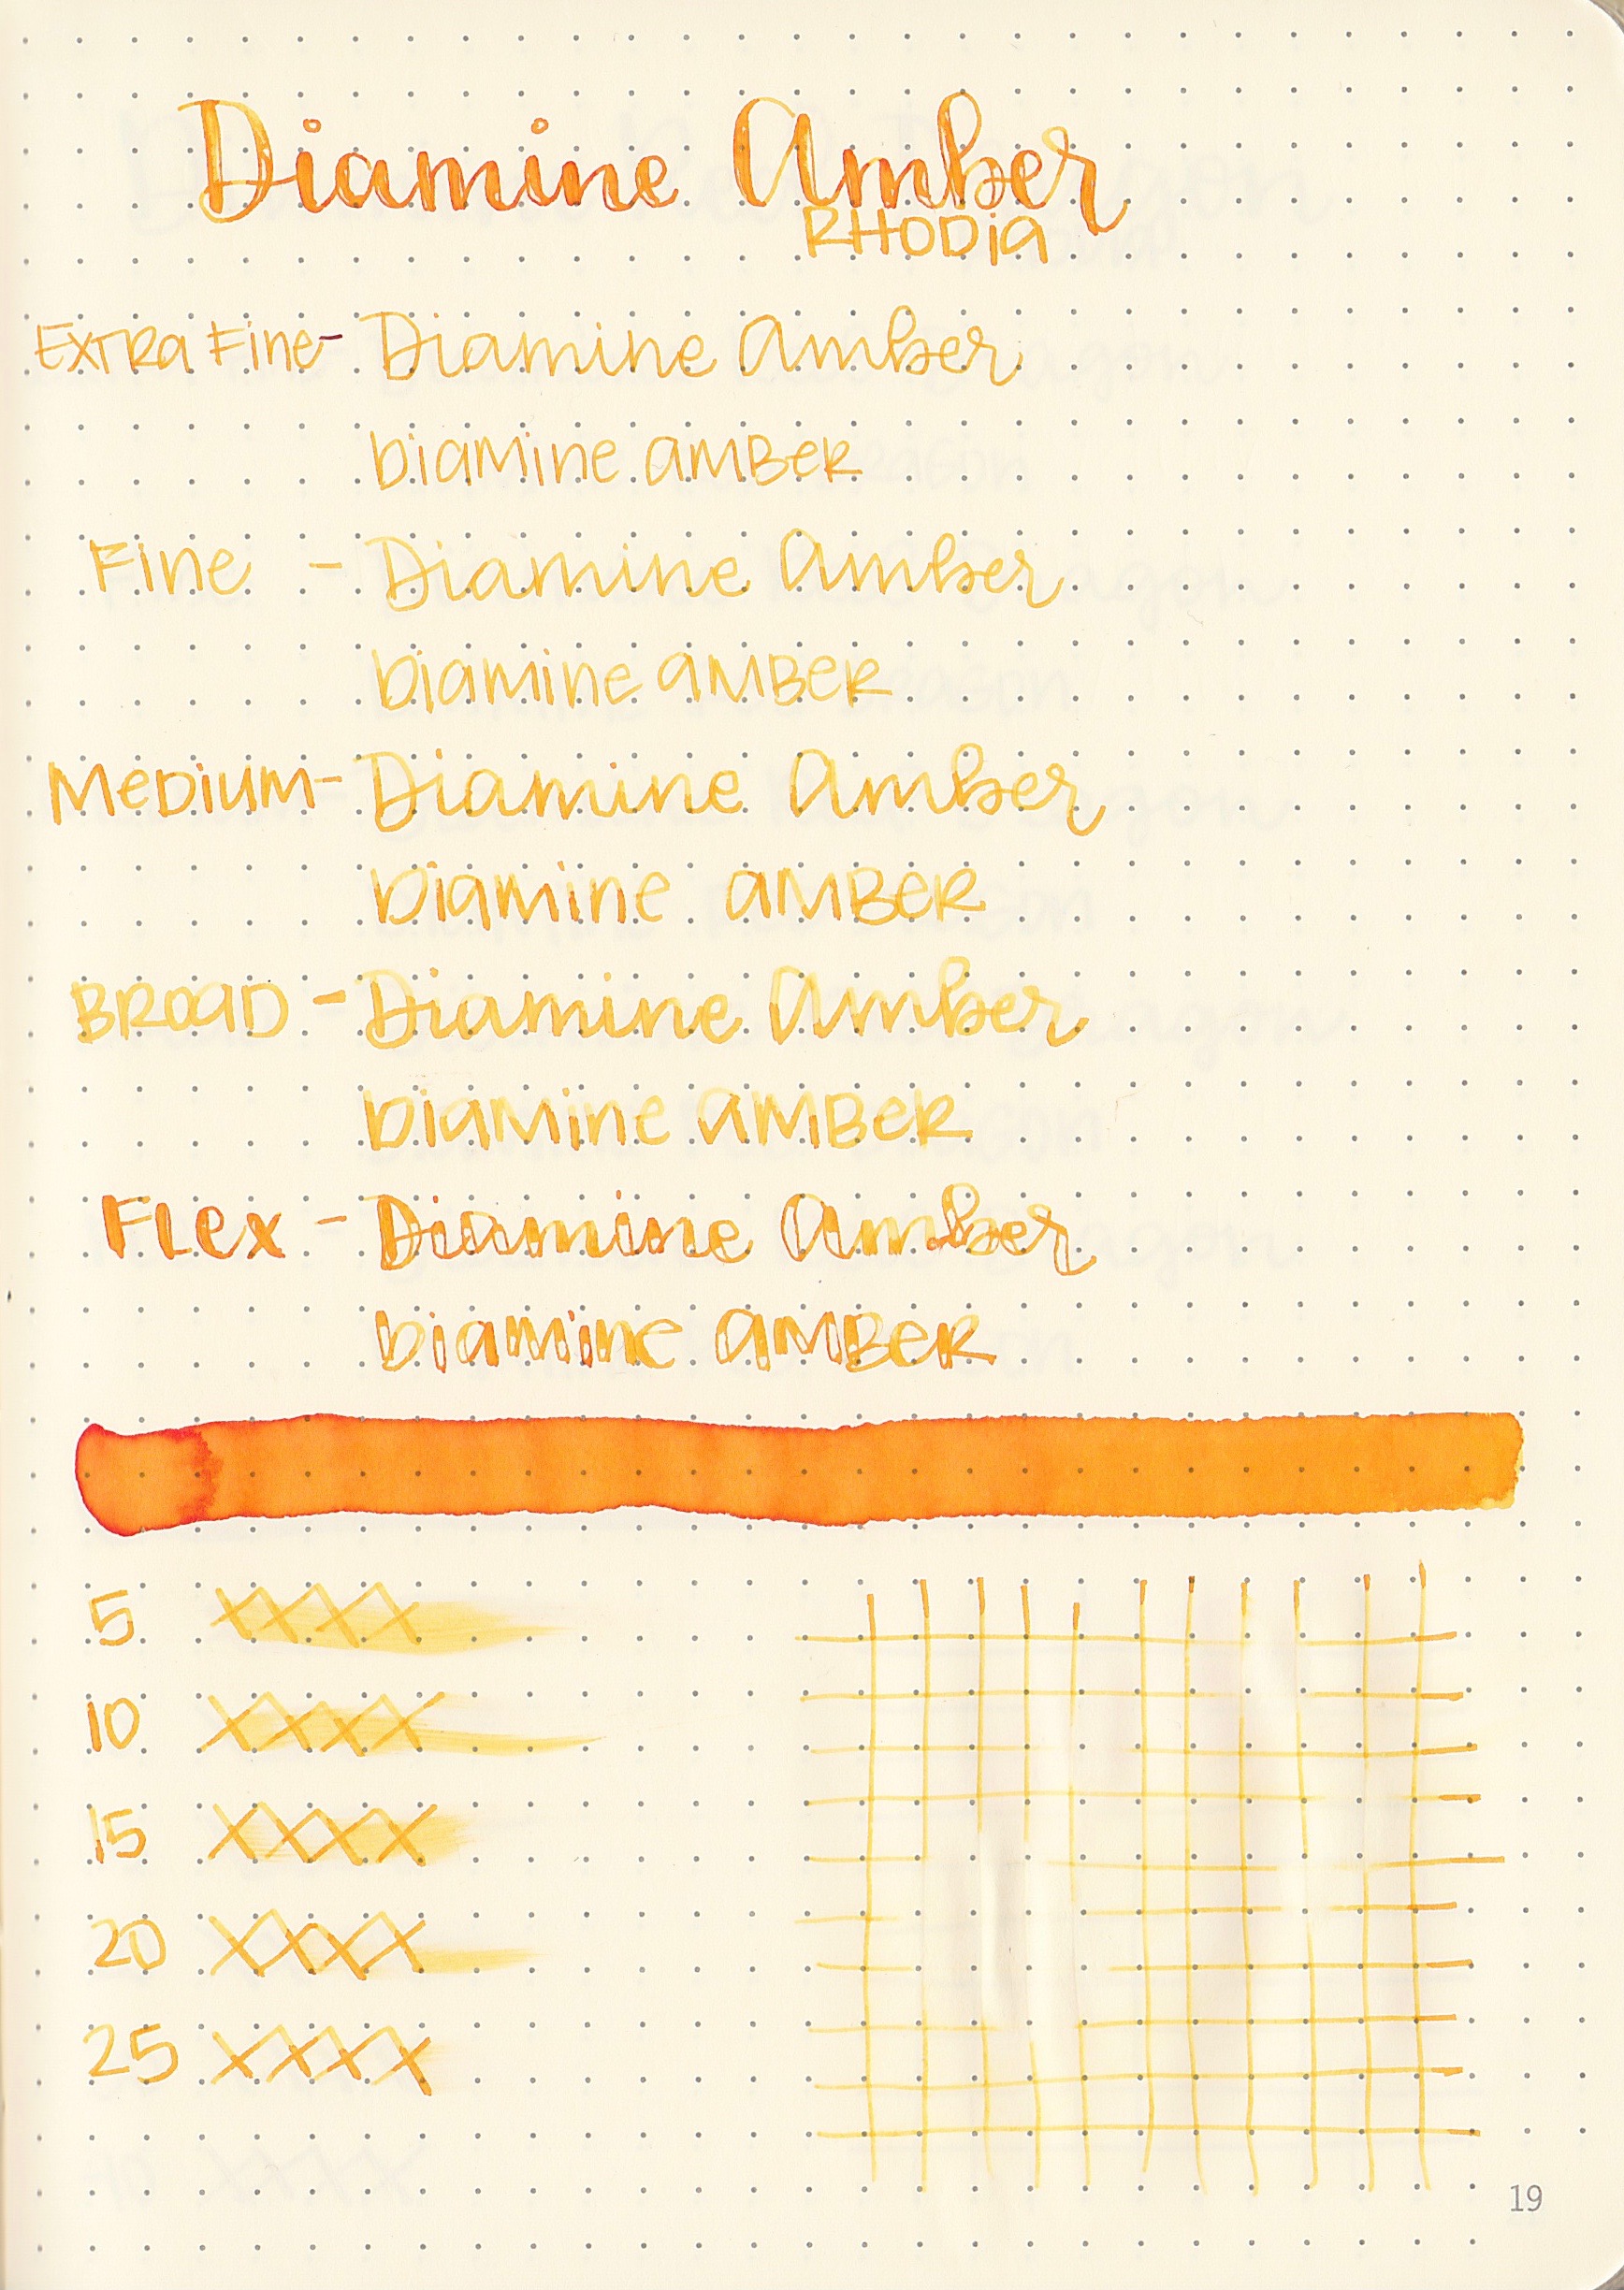 Diamine Amber
RHODia
Extra Fine- Diamine Amber
DiaMine aMBeR
Fine - Diamine Amber
DiaMine aMBeR
MeDiuM- Diamine Amber
Diamine aMBeR
BROaD - Diamine Amber
DiaMine aMBeR
FLex - Diamine Amber
Diamine aMBeR
5 XXXX
10 XXXX
15 XXXX
20 XXXX
25 XXXX
19